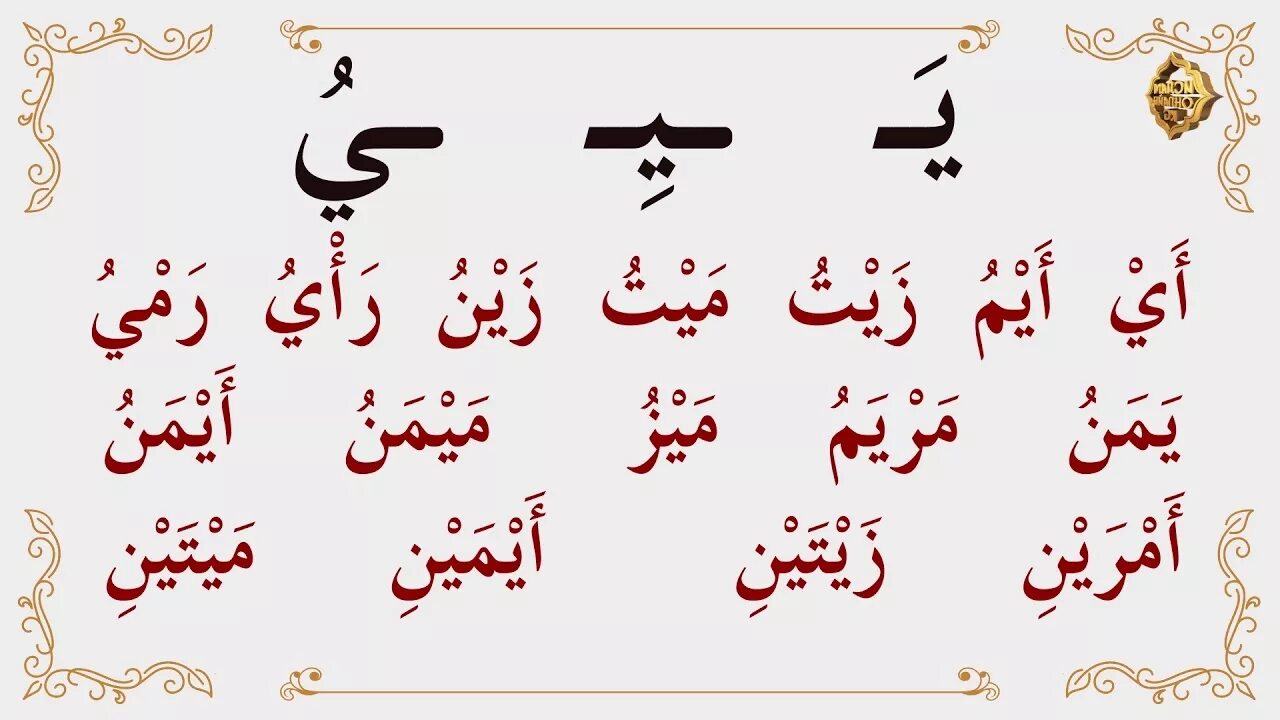 يَـ ـيِـ ـيُ
أَيْ أَيْمُ زَيْتُ مَيْتُ زَيْنُ رَأْيُ رَمْيُ
يَمَنُ مَرْيَمُ مَيْزُ مَيْمَنُ أَيْمَنُ
أَمْرَيْنِ زَيْتَيْنِ أَيْمَيْنِ مَيْتَيْنِ